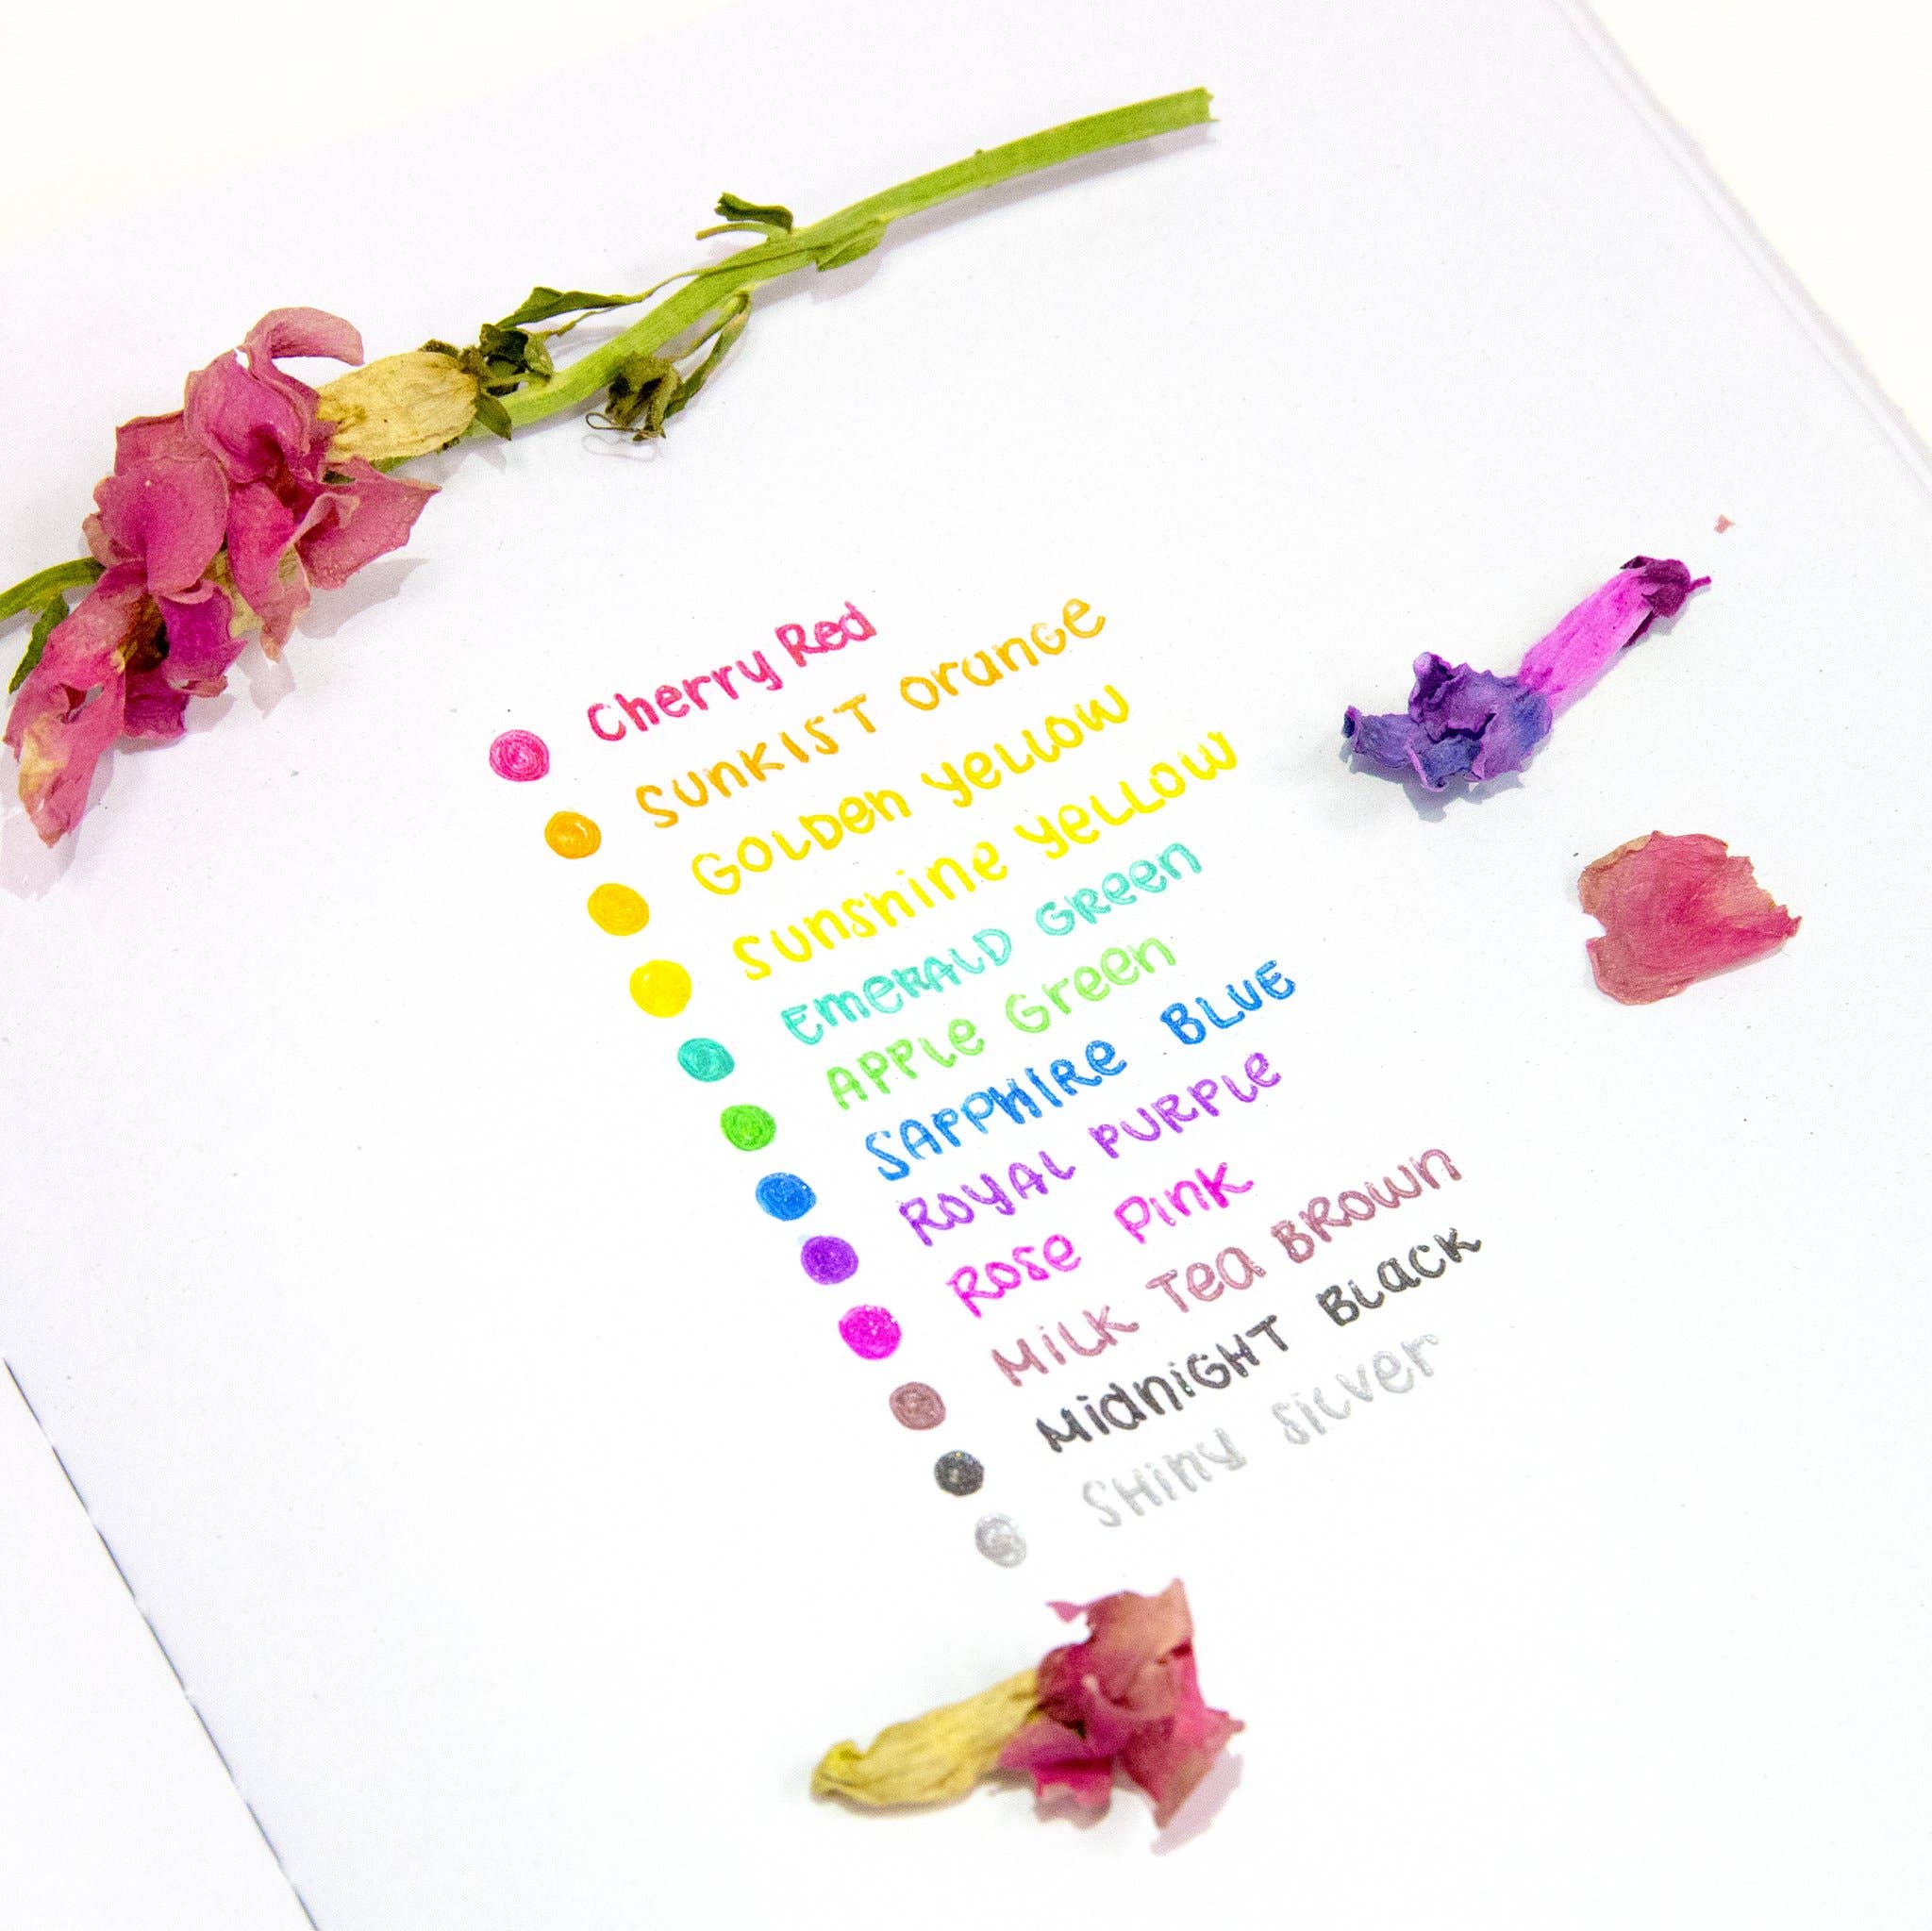 Cherry Red
SUNKIST Orange
GOLDEN YELLOW
SUNSHINE YELLOW
EMERALD GREEN
APPLE Green
SAPPHIRE BLUE
ROYAL PURPLE
ROSE PINK
MILK TEA BROWN
MIDNIGHT BLACK
SHINY SILVER